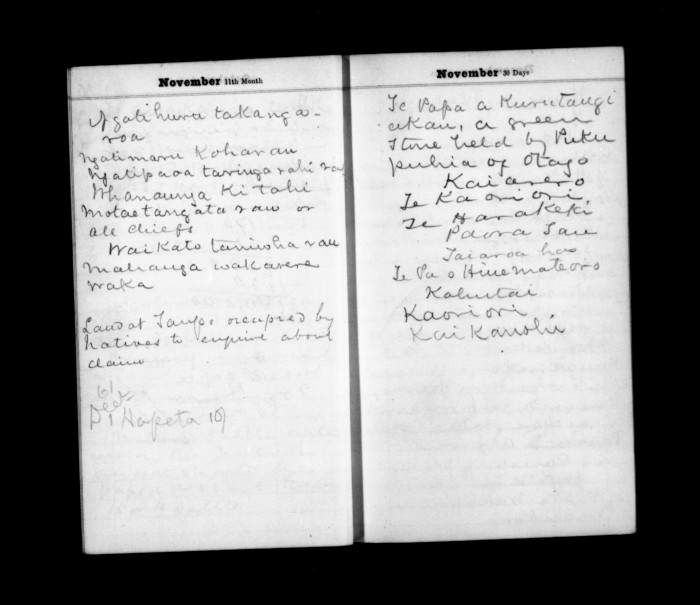 November 11th Month
Ngatihuru takanga-
roa
Ngatimaru Koharau
Ngatipaoa taringa rahi rau
Whanaunga Ki tahi
Motaetangata rau or
all chiefs
Waikato taniwha rau
Mahanga wakarere
waka
Land at Taupo occupied by
natives to enquire about
claim
Hapeta
November 30 Days
Te Papa a Kurutangi
akau, a green
stone held by Puku
puhia of Otago
Kaiarero
Te Kaoriori,
Te Harakeki
Paora Tau
Taiaroa has
Te Pa o Hinemateoro
Kahutai
Kaoriori
Kai Kanohi